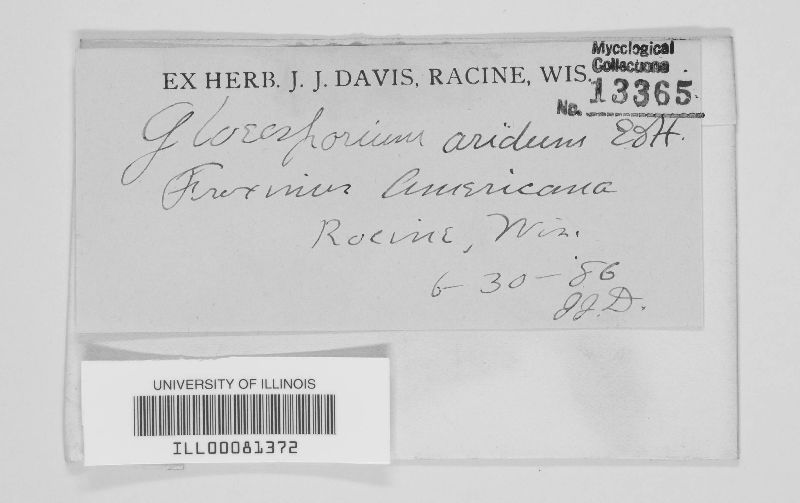 Mycological
Collections
No. 13365
EX HERB. J. J. DAVIS, RACINE, WIS.
Gloeosporium aridum E&H.
Fraxinus Americana
Racine, Wis.
6-30-'86
J.J.D.
UNIVERSITY OF ILLINOIS
ILL00081372